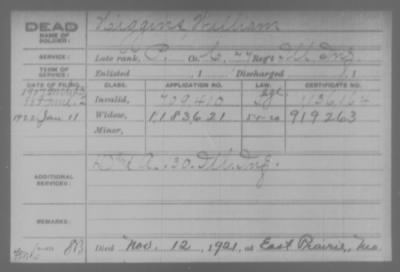 DEAD
NAME OF SOLDIER:
Higgins William
SERVICE:
Late rank, Co. C, Reg't Ill. Inf.
TERM OF SERVICE:
Enlisted , 1 Discharged , 1
DATE OF FILING. CLASS. APPLICATION NO. LAW. CERTIFICATE NO.
Invalid, 709410 Age
1922 Jan 11 Widow, 1183621 919263
Minor,
ADDITIONAL SERVICES:
A. 130. Ill. Inf.
REMARKS:
Died Nov. 12, 1921, at East Prairie, Mo